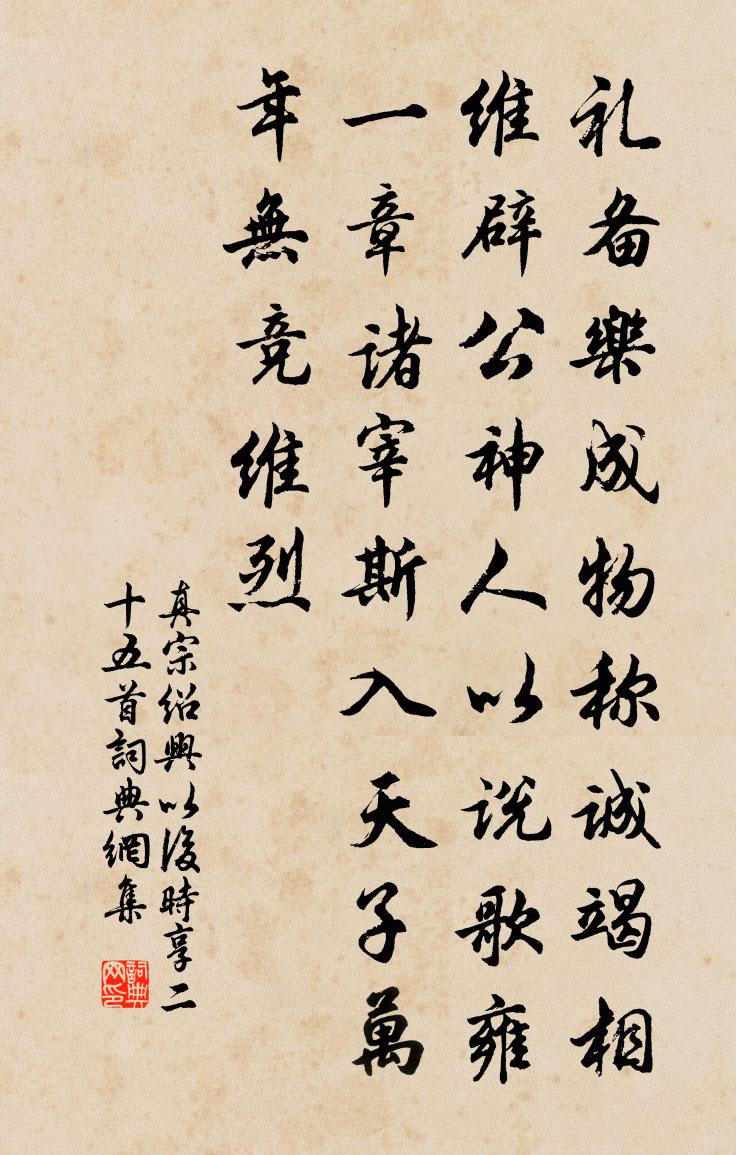 礼备樂成物称诚竭相
维辟公神人以说歌雍
一章诸宰斯入天子萬
年無竞维烈
真宗绍興以後時享二
十五首詞典網集
詞典网印